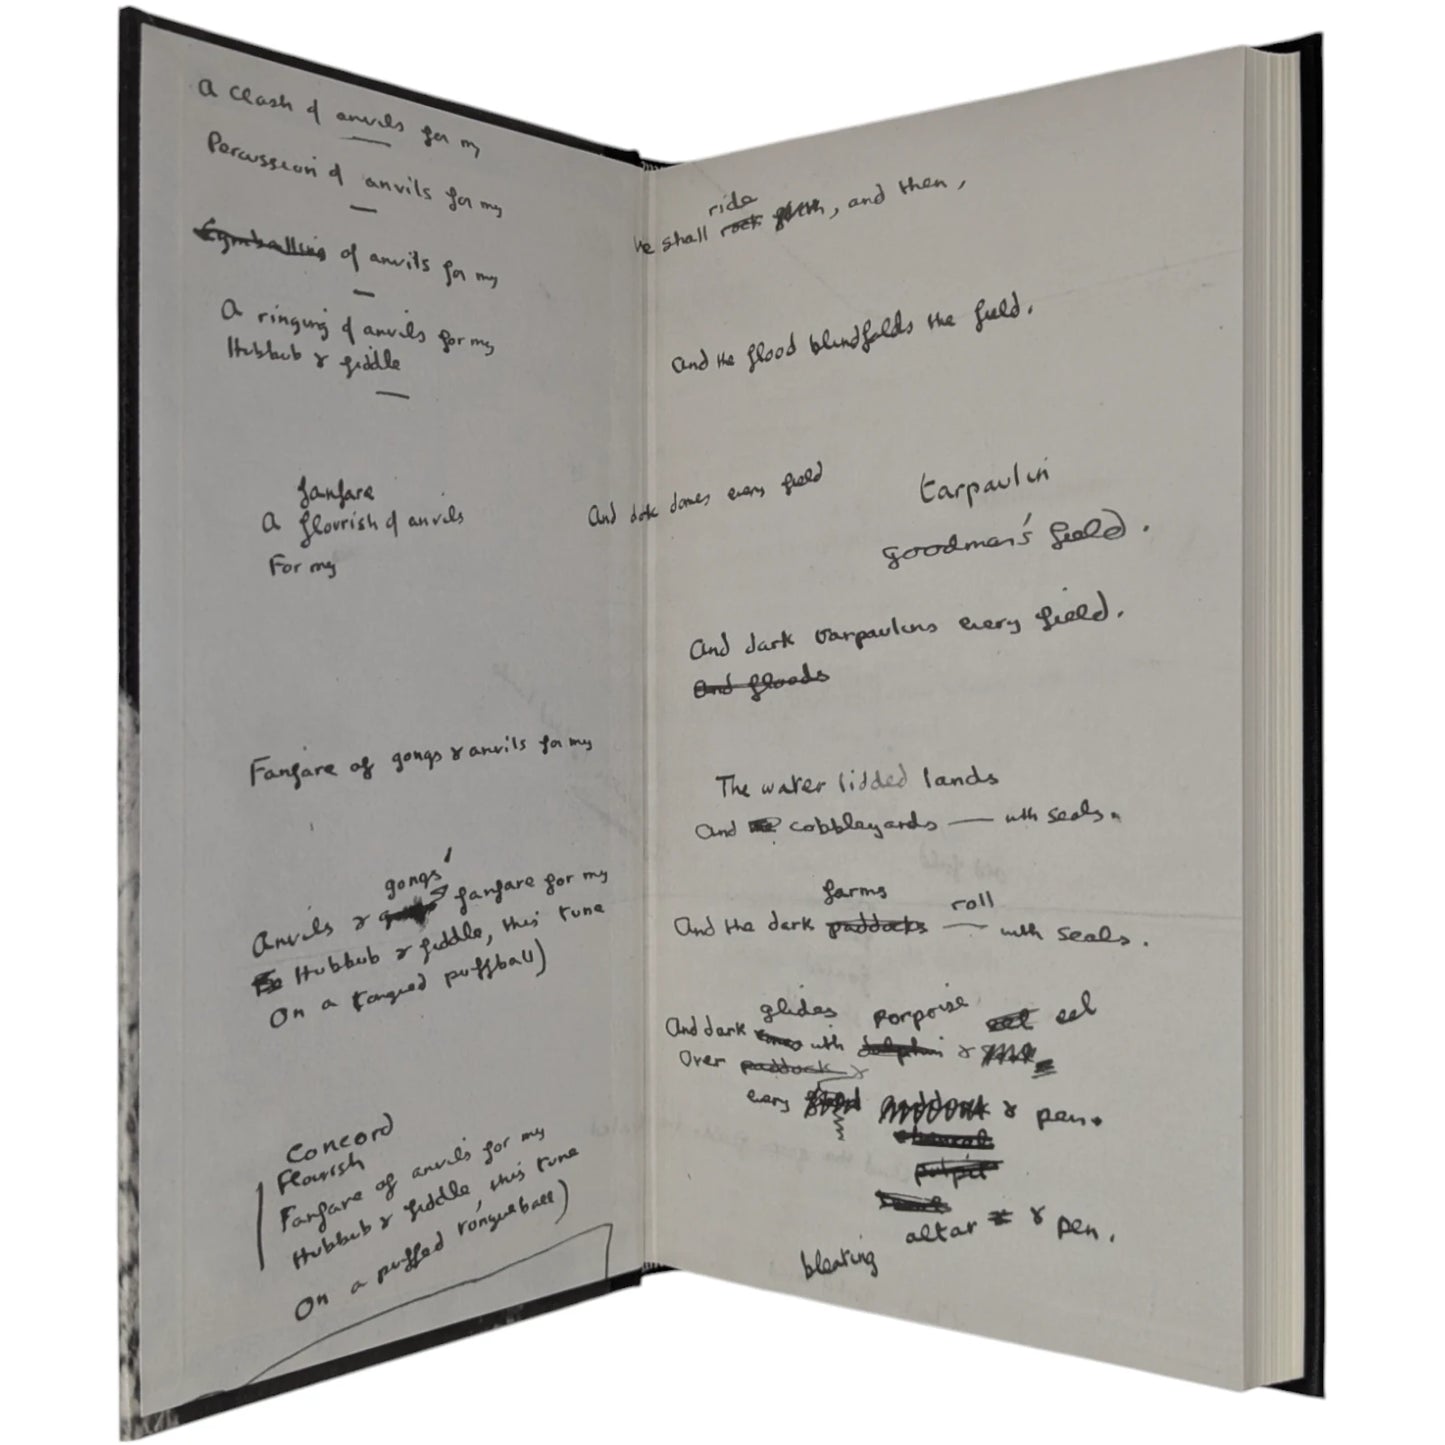 A clash of anvils for my
Percussion of anvils for my
Cymballing of anvils for my
A ringing of anvils for my
Hubbub & fiddle
fanfare
A flourish of anvils
For my
Fanfare of gongs & anvils for my
gongs'
Anvils & fanfare for my
Hubbub & fiddle, this tune
On a tongued puffball)
Concord
Flourish
Fanfare of anvils for my
Hubbub & fiddle, this tune
On a puffed tongueball)
ride
We shall rock, and then,
And the flood blindfolds the field.
And dark domes every field
tarpaulin
goodman's field.
And dark tarpaulins every field.
And floods
The water lidded lands
And the cobbleyards — with seals.
farms
roll
And the dark paddocks — with seals.
glides porpoise eel eel
And dark with dolphin &
Over paddock &
every & pen.
pulpit
altar & pen.
bleating